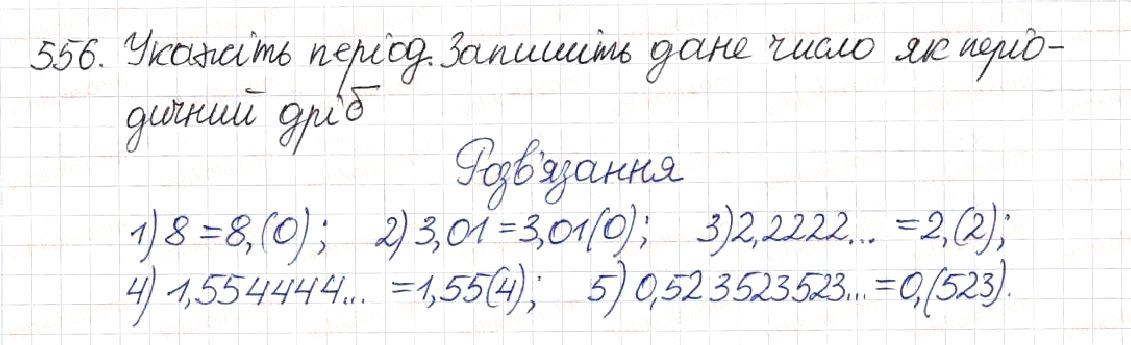 556. Укажіть період. Запишіть дане число як періо-
дичний дріб
Розв'язання
1) 8 = 8,(0); 2) 3,01 = 3,01(0); 3) 2,2222... = 2,(2);
4) 1,554444... = 1,55(4); 5) 0,523523523... = 0,(523).